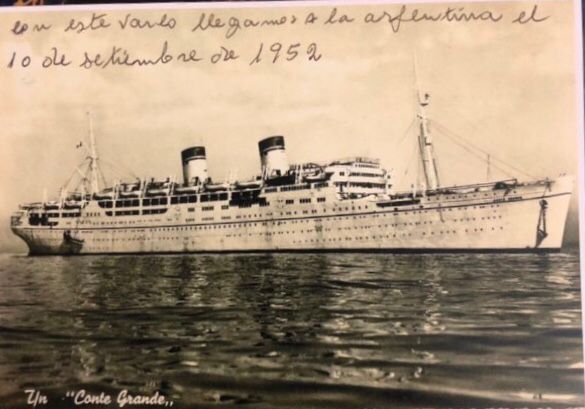 con este varco llegamos a la argentina el
10 de setiembre de 1952
T/n "Conte Grande„